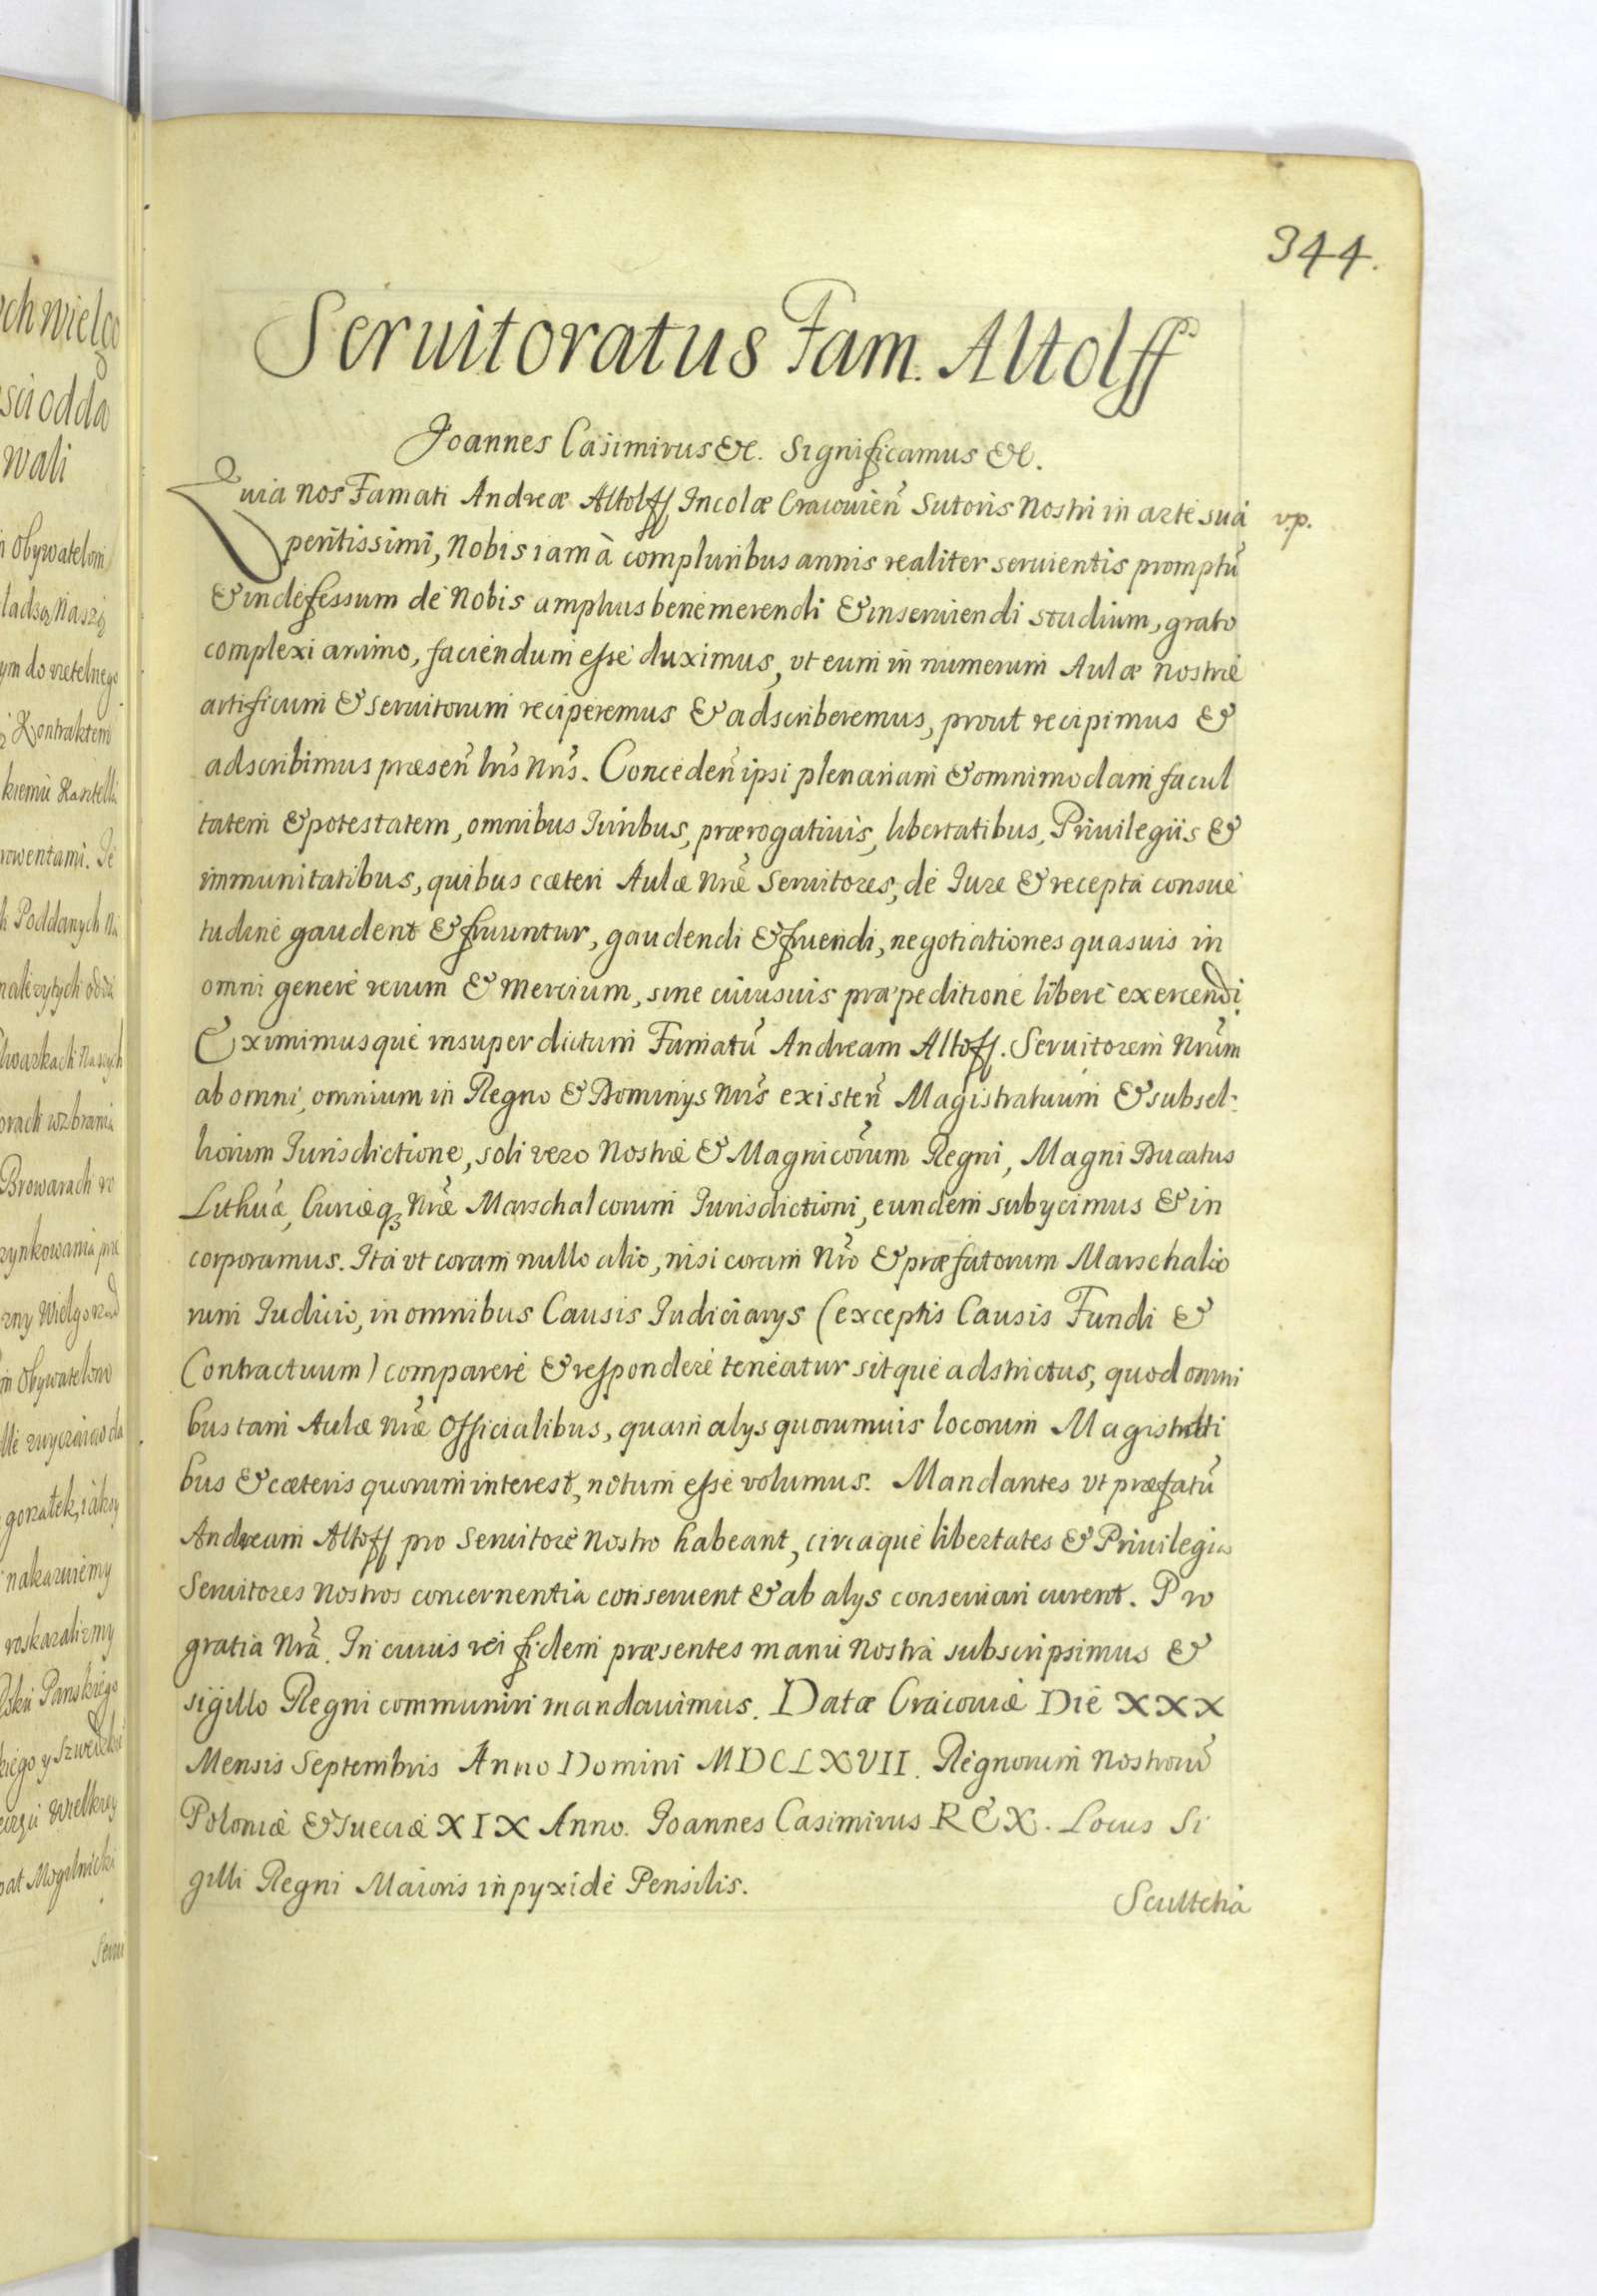 344.
Seruitoratus Fam. Altolff
Joannes Casimirus &c. Significamus &c.
Quia nos Famati Andreæ Altolff Incolæ Cracouien̄ Sutoris Nostri in arte suâ v.p.
peritissimi, Nobis iam à compluribus annis realiter seruientis promptū
& indefessum de Nobis amplius benemerendi & inseruiendi studium, grato
complexi animo, faciendum esse duximus, vt eum in numerum Aulæ Nostræ
artificum & seruitorum reciperemus & adscriberemus, prout recipimus &
adscribimus præsen̄ lr̄is nr̄is. Conceden̄ ipsi plenariam & omnimodam facul
tatem & potestatem, omnibus Juribus, prærogatiuis, libertatibus, Priuilegiis &
immunitatibus, quibus cæteri Aulæ Nr̄æ Seruitores, de Jure & recepta consue
tudine gaudent & fruuntur, gaudendi & fruendi, negotiationes quasuis in
omni genere rerum & mercium, sine cuiusuis præpeditione libere exercendi.
Eximimusque insuper dictum Famatū Andream Altoff. Seruitorem Nr̄um
ab omni, omnium in Regno & Dominys Nr̄is existen̄ Magistratuum & subsel-
liorum Jurisdictione, soli vero Nostræ & Magnicōrum Regni, Magni Ducatus
Lithuæ, Curiæq; Nr̄æ Marschalcorum Jurisdictioni, eundem subycimus & in
corporamus. Ita vt coram nullo alio, nisi coram Nr̄o & præfatorum Marschalco
rum Judicio, in omnibus Causis Judiciarys (exceptis Causis Fundi &
Contractuum) comparere & respondere teneatur sitque adstrictus, quod omni
bus tam Aulæ Nr̄æ Officialibus, quam alys quorumuis locorum Magistrati
bus & cæteris quorum interest, notum esse volumus. Mandantes vt præfatū
Andream Altoff pro Seruitore Nostro habeant, circaque libertates & Priuilegia
Seruitores Nostros concernentia conseruent & ab alys conseruari curent. Pro
gratia Nr̄a. In cuius rei fidem præsentes manu Nostra subscripsimus &
sigillo Regni communiri mandauimus. Datæ Cracouiæ Die XXX
Mensis Septembris Anno Domini MDCLXVII. Regnorum Nostrorū
Poloniæ & Sueciæ XIX Anno. Joannes Casimirus REX. Locus Si
gilli Regni Maioris in pyxide Pensilis.
Scultetia